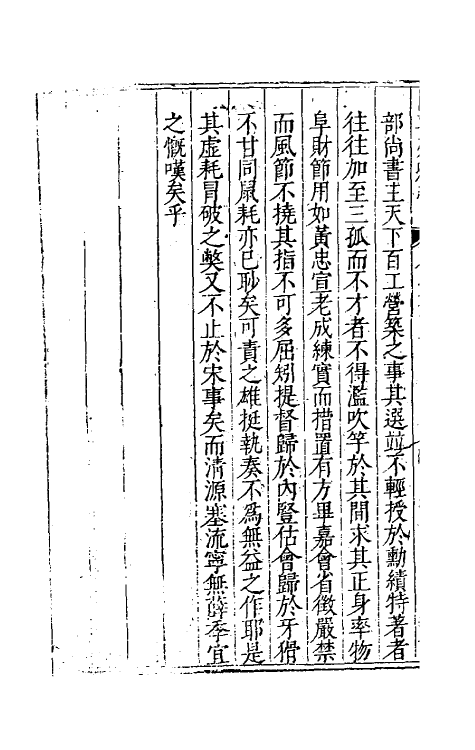 部尚書主天下百工營築之事其選並不輕授於勳績特著者
往往加至三孤而不才者不得濫吹竽於其間求其正身率物
阜財節用如黃忠宣老成練實而措置有方畢嘉會省徵嚴禁
而風節不撓其指不可多屈矧提督歸於內豎估會歸於牙猾
不甘同鼠耗亦已眇矣可責之雄挺執奏不爲無益之作耶是
其虛耗冒破之弊又不止於宋事矣而清源塞流寧無薛季宜
之慨嘆矣乎